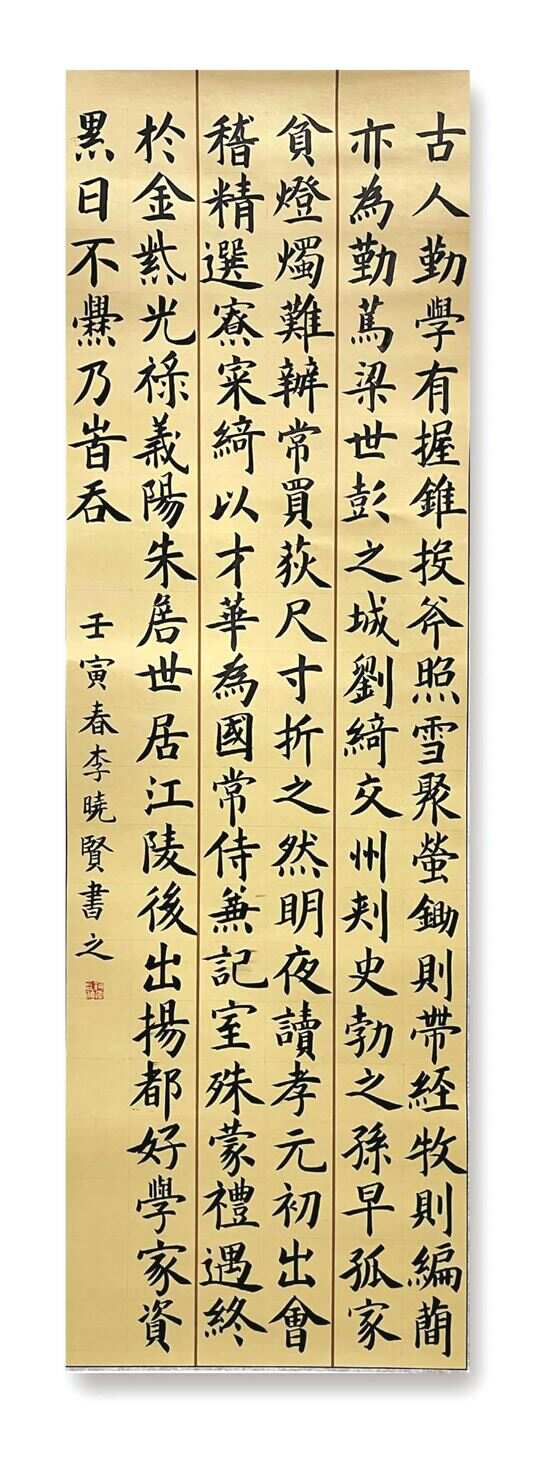 古人勤學有握錐投斧照雪聚螢鋤則帶経牧則編蕳
亦為勤篤梁世彭之城劉綺交州刾史勃之孫早孤家
貧燈燭難辦常買荻尺寸折之然明夜讀孝元初出會
稽精選寮寀綺以才華為國常侍兼記室殊蒙禮遇終
於金紫光祿義陽朱詹世居江陵後出揚都好學家資
累日不爨乃旹吞
壬寅春李曉賢書之